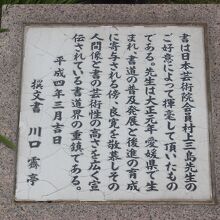 書は日本芸術院会員村上三島先生の
ご好意によって揮毫して頂いたもの
である。先生は大正元年愛媛県で生
まれ、書道の普及発展と後進の育成
に寄与される傍、良寛を敬慕しその
人間像と書の芸術性の高さを広く宣
伝されている書道界の重鎮である。
平成四年三月吉日
撰文書 川口霽亭